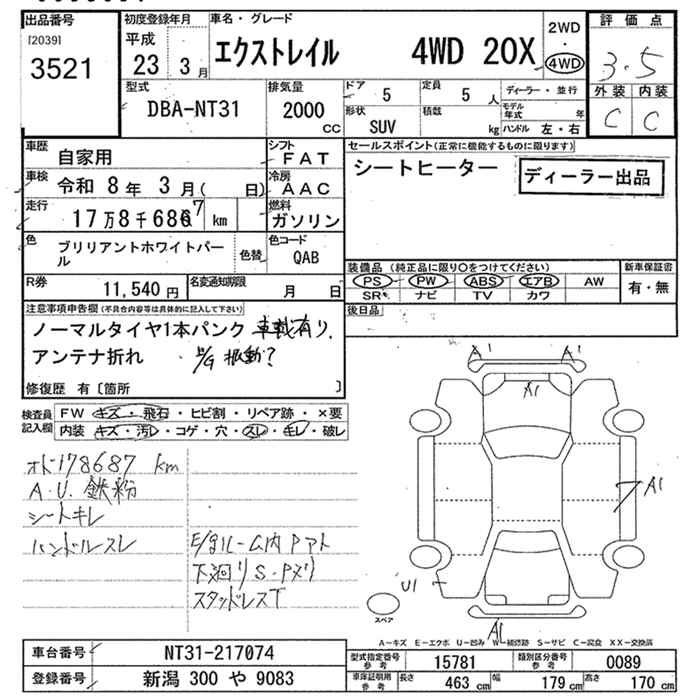 出品番号
[2039]
3521
初度登録年月
平成
23 3月
車名・グレード
エクストレイル 4WD 20X
2WD
・
4WD
評価点
3.5
外装 内装
C C
型式
DBA-NT31
排気量
2000
CC
ドア
5
定員
5人
形状
SUV
積数
kg
ディーラー・並行
モデル年式 年
ハンドル 左・右
車歴
自家用
シフト
FAT
車検
令和 8年 3月( 日)
冷房
AAC
走行
17万8千686 7 km
燃料
ガソリン
色
ブリリアントホワイトパール
色替
色コード
QAB
R券
11,540円
名変通知期限
月 日
セールスポイント(正常に機能するものに限ります)
シートヒーター
ディーラー出品
装備品(純正品に限り○をつけてください)
PS PW ABS エアB AW
SR ナビ TV カワ
新車保証書
有・無
後日品
注意事項申告欄(不具合内容等は具体的に記入して下さい)
ノーマルタイヤ1本パンク 車載有り.
アンテナ折れ 振動?
修復歴 有〔箇所 〕
検査員記入欄
FW キズ・飛石・ヒビ割・リペア跡・×要
内装 キズ・汚レ・コゲ・穴・スレ・キレ・破レ
オド178687 km
A.U. 鉄粉
シートキレ
ハンドルスレ
E/gルーム内 Pアト
下廻り S・Pメリ
スタッドレスT
A1 A1
A1
A1
U1
A1
スペア
A-キズ E-エクボ U-凹み W-補修跡 S-サビ C-腐食 XX-交換済
車台番号
NT31-217074
登録番号
新潟 300 や 9083
型式指定番号
参考
15781
類別区分番号
参考
0089
車庫証明用
参考
長さ 463cm
幅 179cm
高さ 170cm